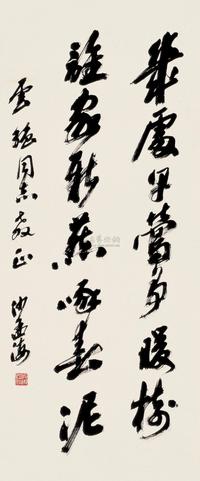 幾處早鶯争暖樹
誰家新燕啄春泥
雲穎同志教正
沙孟海